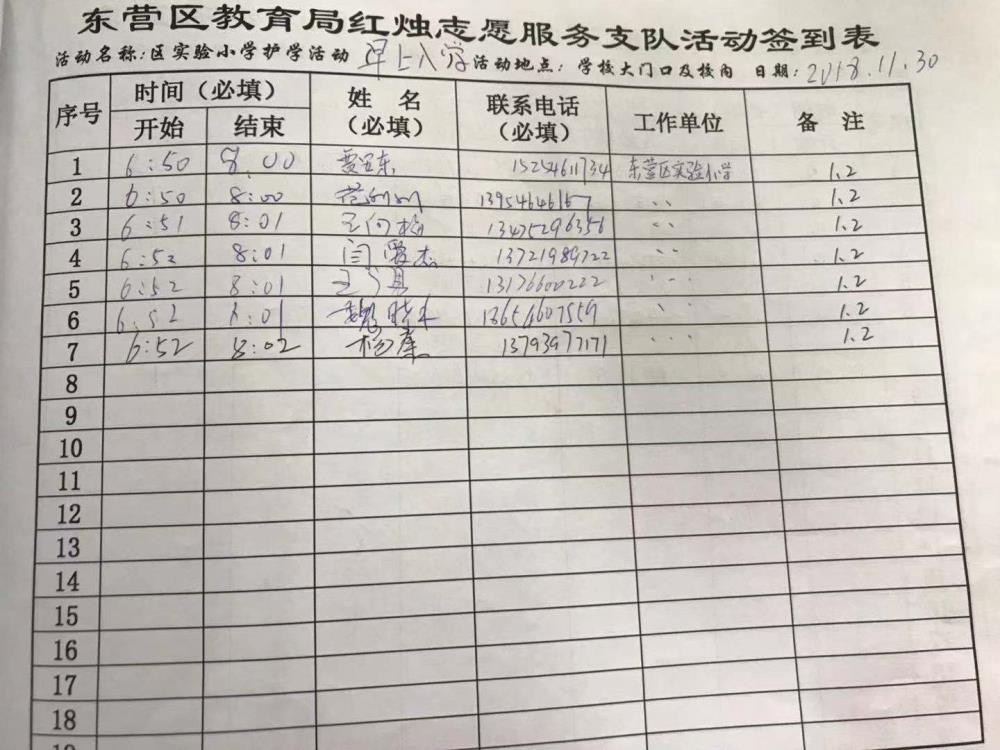 东营区教育局红烛志愿服务支队活动签到表
活动名称:区实验小学护学活动 早上入学 活动地点: 学校大门口及校内 日期: 2018.11.30
序号 时间（必填） 姓 名 联系电话 工作单位 备 注
开始 结束 （必填） （必填）
1 6:50 8:00 15254611734 东营区实验小学 1.2
2 6:50 8:00 1.2
3 6:51 8:01 13475296356 1.2
4 6:52 8:01 闫 杰 13721989722 1.2
5 6:52 8:01 13176600222 1.2
6 6:52 8:01 魏 1.2
7 6:52 8:02 13793977171 1.2
8
9
10
11
12
13
14
15
16
17
18